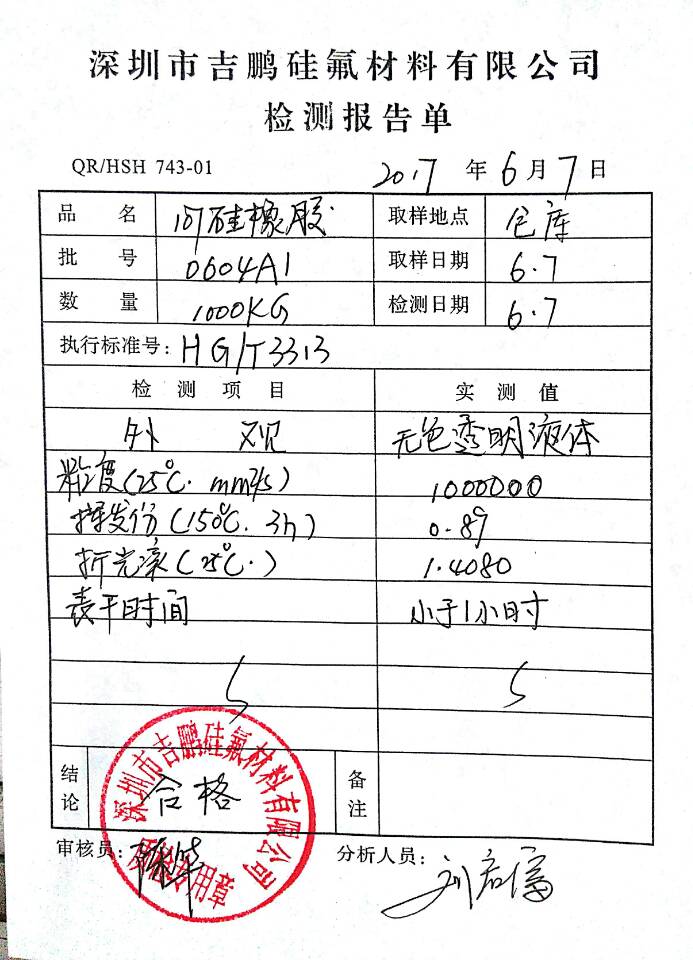 深圳市吉鹏硅氟材料有限公司
检测报告单
QR/HSH 743-01 2017 年 6 月 7 日
品 名 107硅橡胶 取样地点 仓库
批 号 0604A1 取样日期 6.7
数 量 1000KG 检测日期 6.7
执行标准号: HG/T3313
检 测 项 目 实 测 值
外 观 无色透明液体
粘度(25℃. mm²/s) 1000000
挥发份(150℃. 3h) 0.89
折光率(25℃.) 1.4080
表干时间 小于1小时
结论 合格 备注
深圳市吉鹏硅氟材料有限公司
质检专用章
审核员: 分析人员: